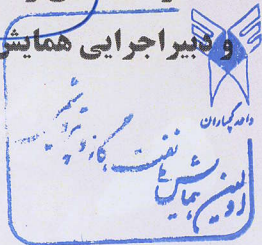 و دبیر اجرایی همایش
واحد گچساران
اولین همایش
نفت، گاز و پتروشیمی